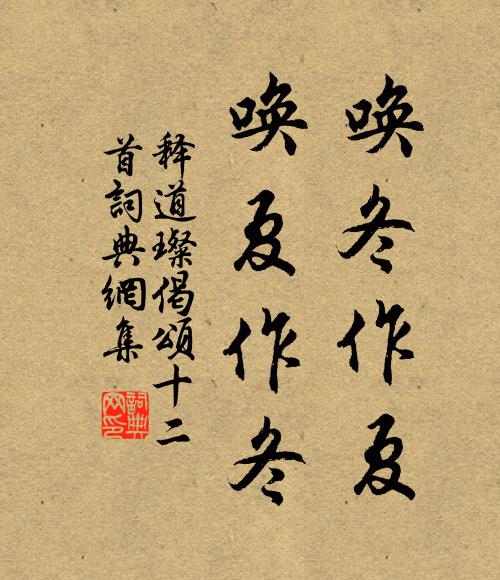 唤冬作夏
唤夏作冬
释道璨偈頌十二
首詞典網集
詞典网印